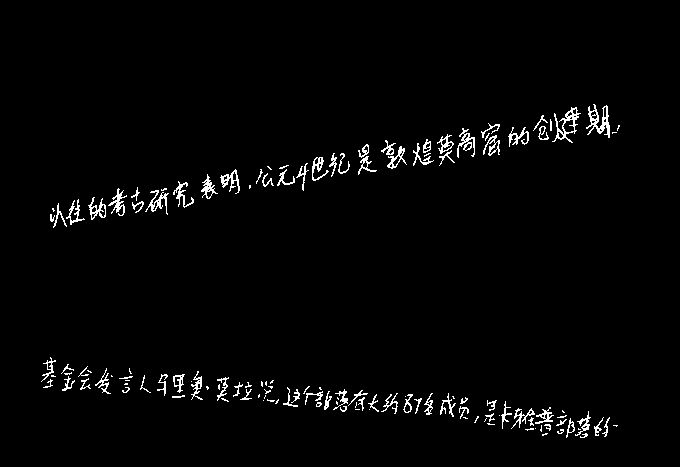 以往的考古研究表明,公元4世纪是敦煌莫高窟的创建期,
基金会发言人马里奥·莫拉说,这个部落有大约87名成员,是卡雅普部落的一